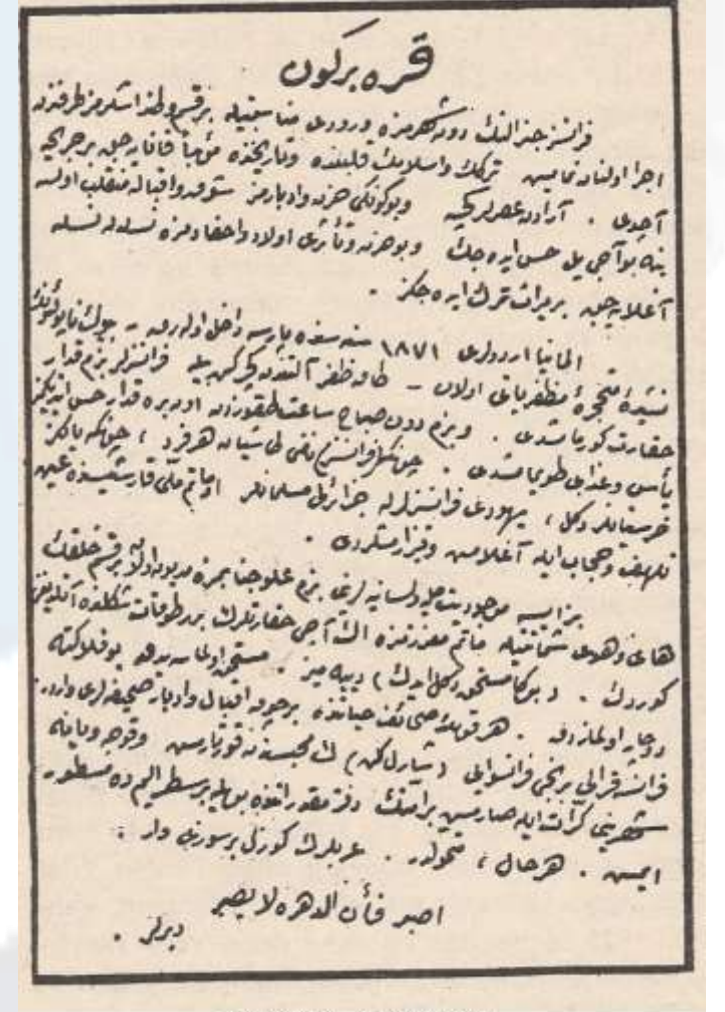 قره بر كون
فرانسز جنرالنك دون شهرمزه ورودى مناسبتيله بر قسم وطنداشلرمز طرفندن
اجرا اولنان نمايش تركك واسلامك قلبنده وتاريخنده مؤبداً قانايه جق بر جريحه
آچدى . آرادن عصرلر كچسه وبوكونكى حزن وادبارمز شوق واقباله منقلب اولسه
ينه بو آجى يى حس ايده جك وبو حزن وتأثرى اولاد واحفادمزه نسلدن نسله
آغلايه جق بر ميراث ترك ايده جكز .
المانيا اردولرى ١٨٧١ سنه سنده پارسه داخل اولهرق - بيوك ناپوليونك
نشيدۀ متحجرۀ مظفرياتى اولان - طاق ظفرك آلتندن كچركن بيله فرانسزلر بزم قدار
حقارت كورمامشدى . وبزم دون صباح ساعت طقوزدن اون بره قدار حس ايتديكمز
يأس وعذابى طويمامشدى . چونكه فرانسز نامنى طاشيان هر فرد ، چونكه يالكز
خرستيانلر دكل ، يهودى فرانسزلرله جزائرلى مسلمانلر او ماتم ملى قارشيسنده عين
تلهف وحجاب ايله آغلامش وقيزارمشلردى .
بز ايسه موجوديت مليه ولسانيه لرينى بزم علو جنابمزه مديون اولان بر قسم خلقك
هاى وهوى شماتتيله ماتم معززمزه اك آجى حقارتلرك برر طوقات شكلنده آتلديغنى
كوردك . ( بوكا مستحق دكل ايدك ) ديه ميز . مستحق اولماسه يدق بو فلاكته
دوچار اولمازدق . هر قومك صحائف حياتنده بر چوق اقبال وادبار صحيفه لرى واردر.
فرانسه قرالى برنجى فرانسوايى ( شارلكن ) ك محبسندن قورتارمش وقوجه ويانه
شهرينى كرّات ايله صارمش بر امتك دفتر مقدراتنده بويله بر سطر اليم ده مسطور
ايمش . هر حال ، متحولدر . عربلرك كوزل بر سوزى وار :
اصبر فأن الدهر لا يصبر
ديرلر .